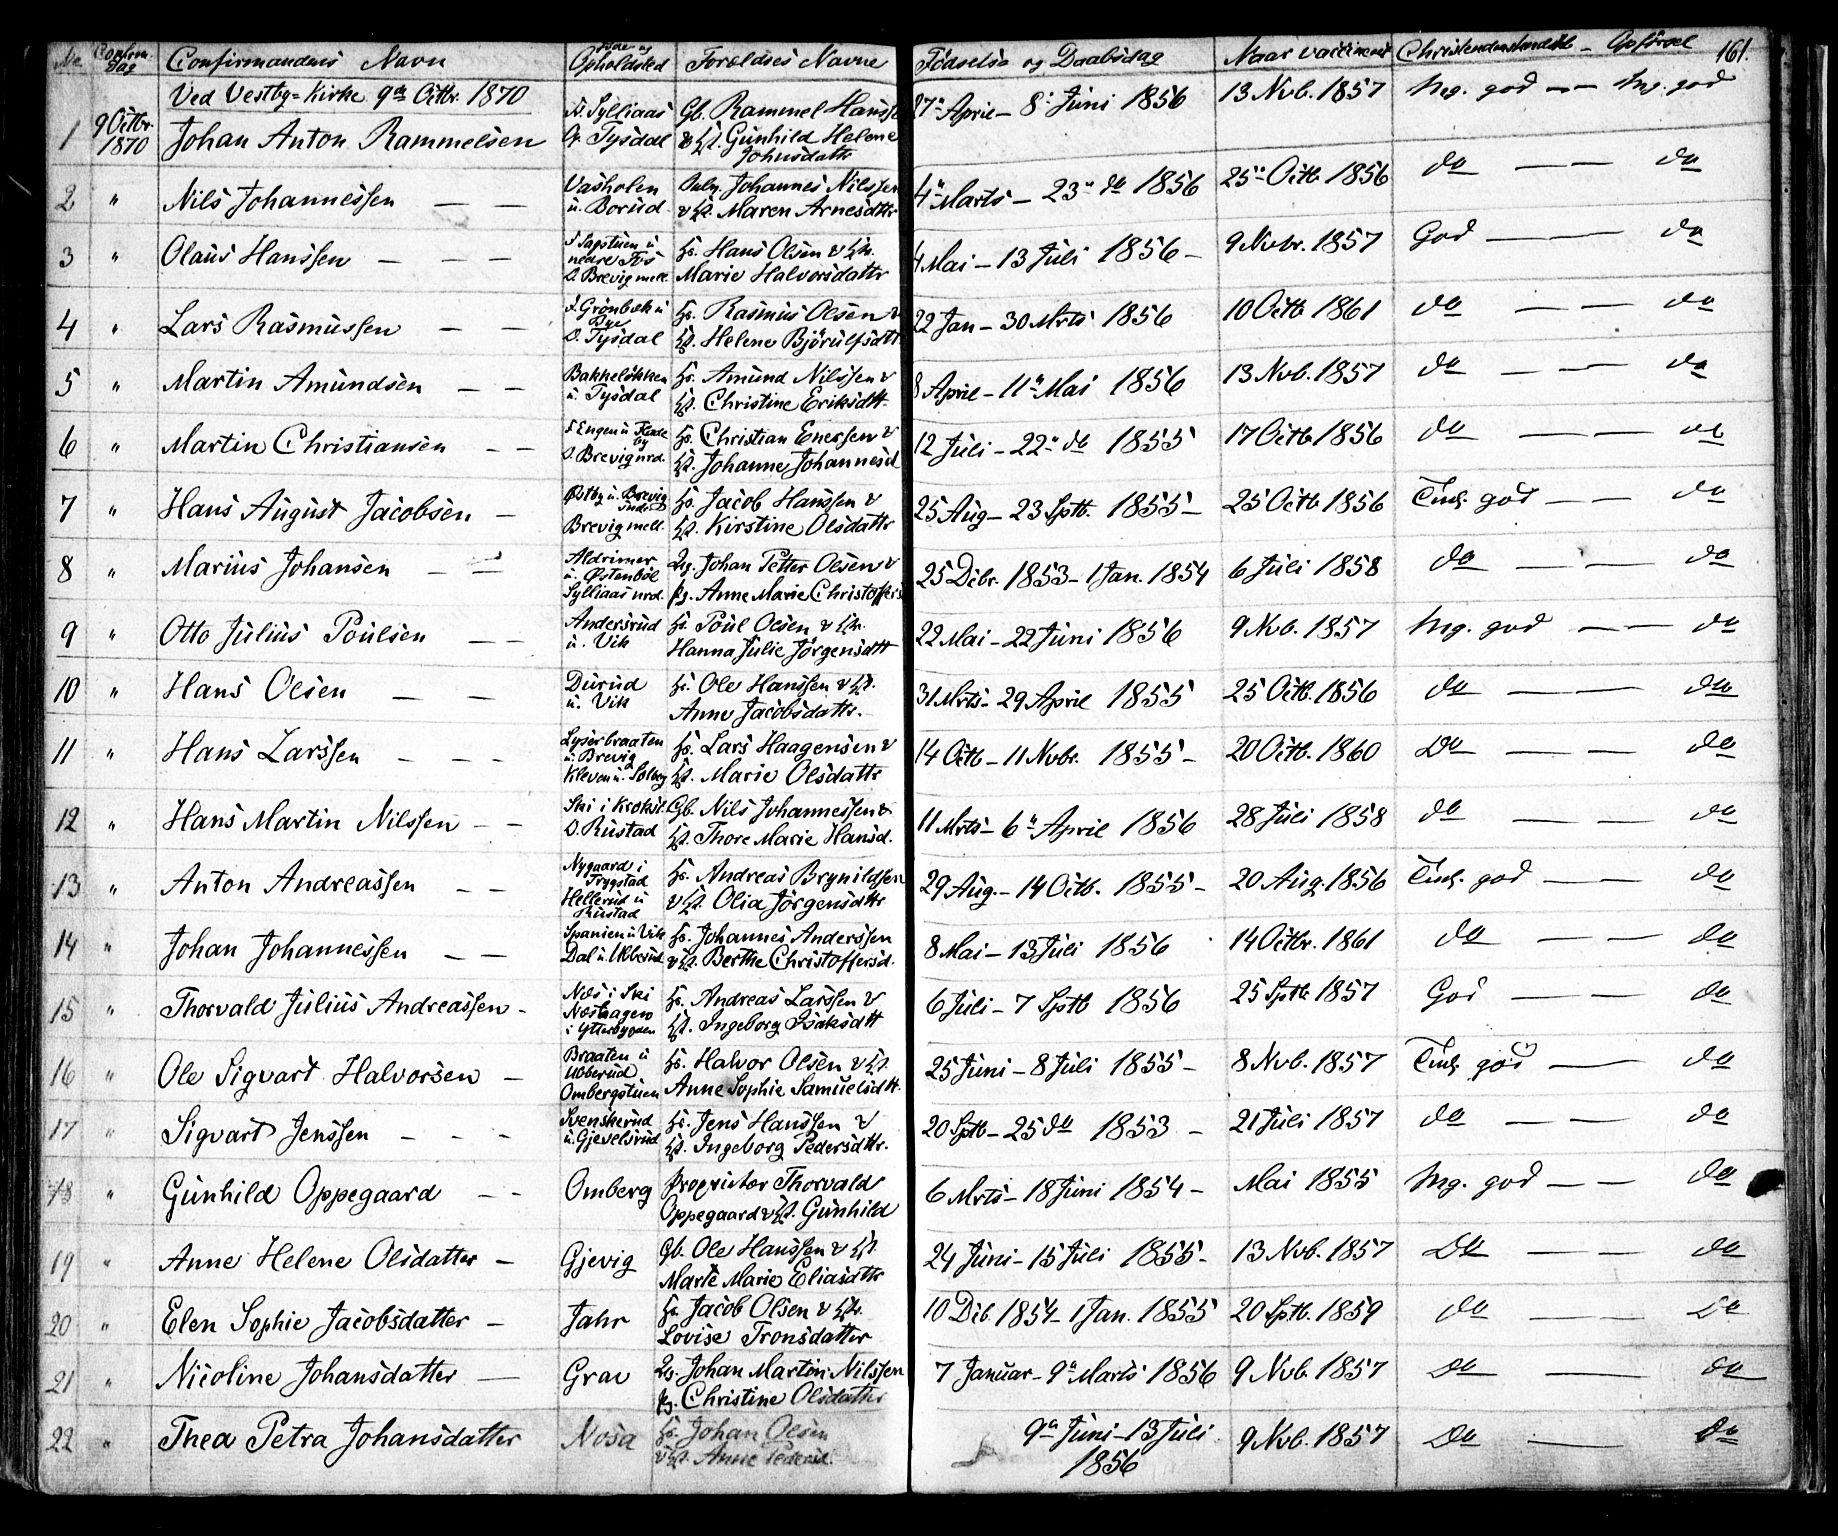 No. Confirm. dag Confirmandens Navn Føde og Opholdsted Forældres Navne Fødsels og Daabsdag Naar vaccineret Christendomskundsk. – Opførsel 161.
Ved Vestby=Kirke 9de Octbr. 1870
1 9 Octbr. 1870 Johan Anton Rammelsen F. Sylliaas O. Tysdal Gb. Rammel Hansse & H. Gunhild Helene Johnsdattr 27de April – 8de Juni 1856 13 Nvb. 1857 Meg. god — Mg. god
2 " Nils Johannessen — — Vasholen u. Borud Slvg. Johannes Nilssen & H. Maren Arnesdttr 4de Marts – 23de do 1856 25de Octb. 1856 do — — do
3 " Olaus Hanssen — — — F. Sagstuen u nedre Fos O. Brevig mell. Hs. Hans Olsen & H. Marie Halvorsdattr 4 Mai – 13 Juli 1856 – 9 Nvbr. 1857 God — do
4 " Lars Rasmussen — — F. Grønbæk u Bye O. Tysdal Hs. Rasmus Olsen & H. Helene Bjørulfsdtt 22 Jan – 30 Mrts 1856 10 Octb 1861 do — — do
5 " Martin Amundsen — — Bakkeløkken u. Tysdal Hs. Amund Nilssen & H. Christine Eriksdtt. 8 April – 11te Mai 1856 13 Nvb. 1857 do — — do
6 " Martin Christiansen — — F Engen u Hvide by O. Brevig nrd. Hs. Christian Enersen & H. Johanne Johannesd 12 Juli – 22de do 1855 17 Octb 1856 do — — do
7 " Hans August Jacobsen — Østby u. Brevig Brevig mell. Hs. Jacob Hanssen & H. Kirstine Olsdattr 25 Aug – 23 Sptb. 1855 – 25 Octb 1856 Tml. god — — do
8 " Marius Johansen — — Aldrimer u. Østenbøl Sylliaas nrd. Ug. Johan Petter Olsen & Pg. Anne Marie Christoffers 25 Decbr. 1853 – 1 Jan. 1854 6 Juli 1858 do — — do
9 " Otto Julius Poulsen — — Andersrud u. Vik Hs. Poul Olsen & H. Hanna Julie Jørgensdtt 22 Mai – 22 Juni 1856 9 Nvb. 1857 Mg. god — — do
10 " Hans Olsen — — Durud u. Vik Hs. Ole Hanssen & H. Anne Jacobsdattr. 31 Mrts – 29 April 1855 25 Octb. 1856 do — — do
11 " Hans Larssen — — — Lyserbraaten u. Brevig Kleven u. Solberg Hs. Lars Haagensen & H. Marie Olsdattr 14 Octb – 11 Nvbr. 1855 – 20 Octb. 1860 Do — — do
12 " Hans Martin Nilssen — — Ski i Krokst. O. Rustad Gb. Nils Johannessen & H. Thore Marie Hansd. 11 Mrts – 6te April 1856 28 Juli 1858 do — — do
13 " Anton Andreassen — — Nygaard i Trygstad Hellerud u Rustad Hs. Andreas Brynildsen & H. Olia Jørgensdttr 29 Aug. – 14 Octb. 1855 – 20 Aug. 1856 Tml. god — — do
14 " Johan Johannessen — — Spanien u Vik Dal u. Ubberud Hs. Johannes Anderssen & H. Berthe Christoffersd. 8 Mai – 13 Juli 1856 14 Octbr. 1861 do — — do
15 " Thorvald Julius Andreassen – Næs i Ski Næshagen i Ytterbygden Hs. Andreas Larssen & H. Ingeborg Isaksdtt 6 Juli – 7 Sptb 1856 25 Sptb 1857 God — — do
16 " Ole Sigvart Halvorsen — Braaten u Ubberud Ombergstuen Hs. Halvor Olsen & H. Anne Sophie Samuelsdtt. 25 Juni – 8 Juli 1855 – 8 Nvb. 1857 Tml. god — do
17 " Sigvart Jenssen — — — Svenskerud u. Gjevelsrud Hs. Jens Hanssen & H. Ingeborg Pedersdttr. 20 Sptb – 25 do 1853 – 21 Juli 1857 do — — do
18 " Gunhild Oppegaard — — Omberg Proprietær Thorvald Oppegaard & H. Gunhild 6 Mrts – 18 Juni 1854 – Mai 1855 Mg. god — — do
19 " Anne Helene Olsdatter — Gjevig Gb. Ole Hanssen & H. Marte Marie Eliasdttr 24 Juni – 15 Juli 1855 – 13 Nvb. 1857 Do — — do
20 " Elen Sophie Jacobsdatter — Jahr Hs. Jacob Olsen & H. Lovise Tronsdatter 10 Dcb. 1854 – 1 Jan. 1855 20 Sptb. 1859 do — — Do
21 " Nicoline Johansdatter — Grav Ug. Johan Martin Nilssen Pg. Christine Olsdatter 7 Januar – 9de Marts 1856 9 Nvb. 1857 Do — — do
22 " Thea Petra Johansdatter Nosa Hs. Johan Olsen & H. Anne Pedersd. 9de Juni – 13 Juli 1856 9 Nvb. 1857 Do — do